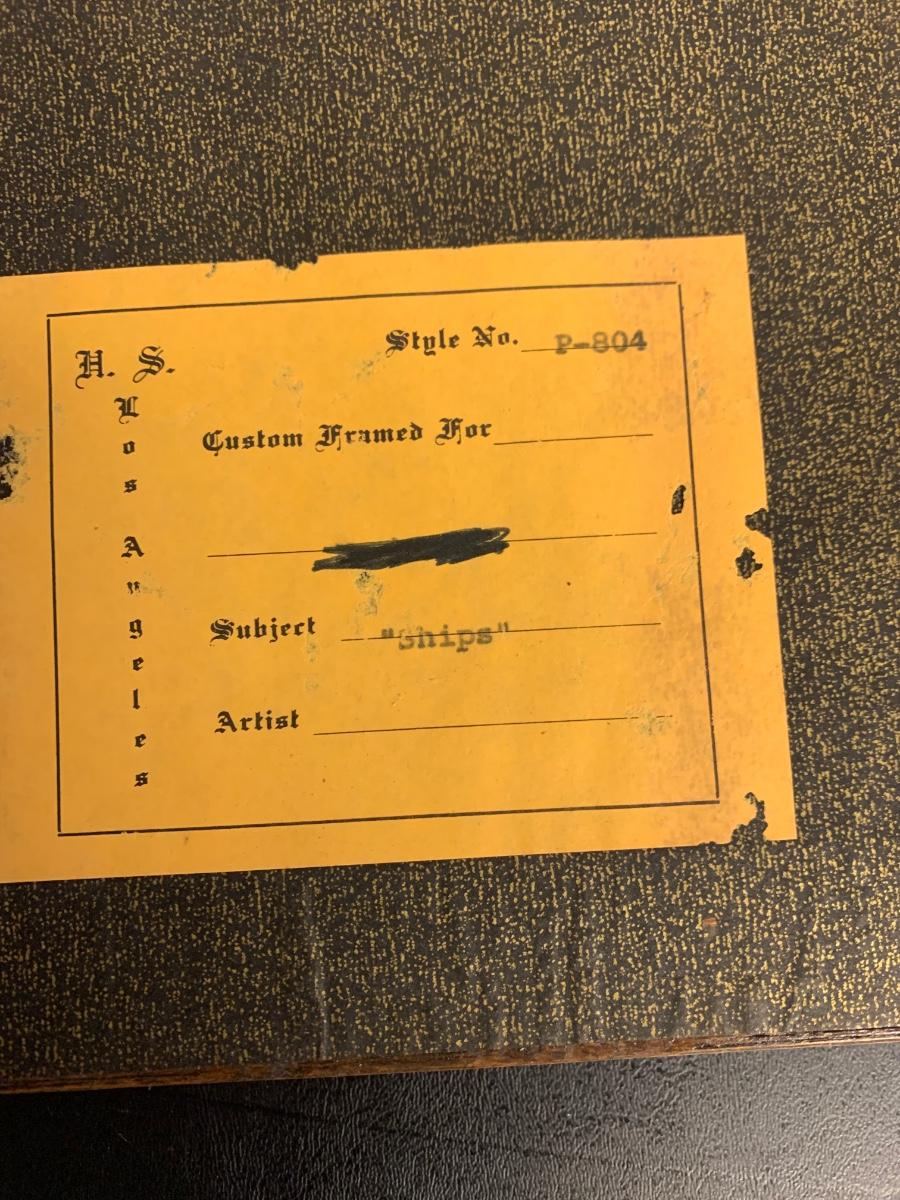 H. S.
Los Angeles
Style No. P-804
Custom Framed For
Subject "Ships"
Artist